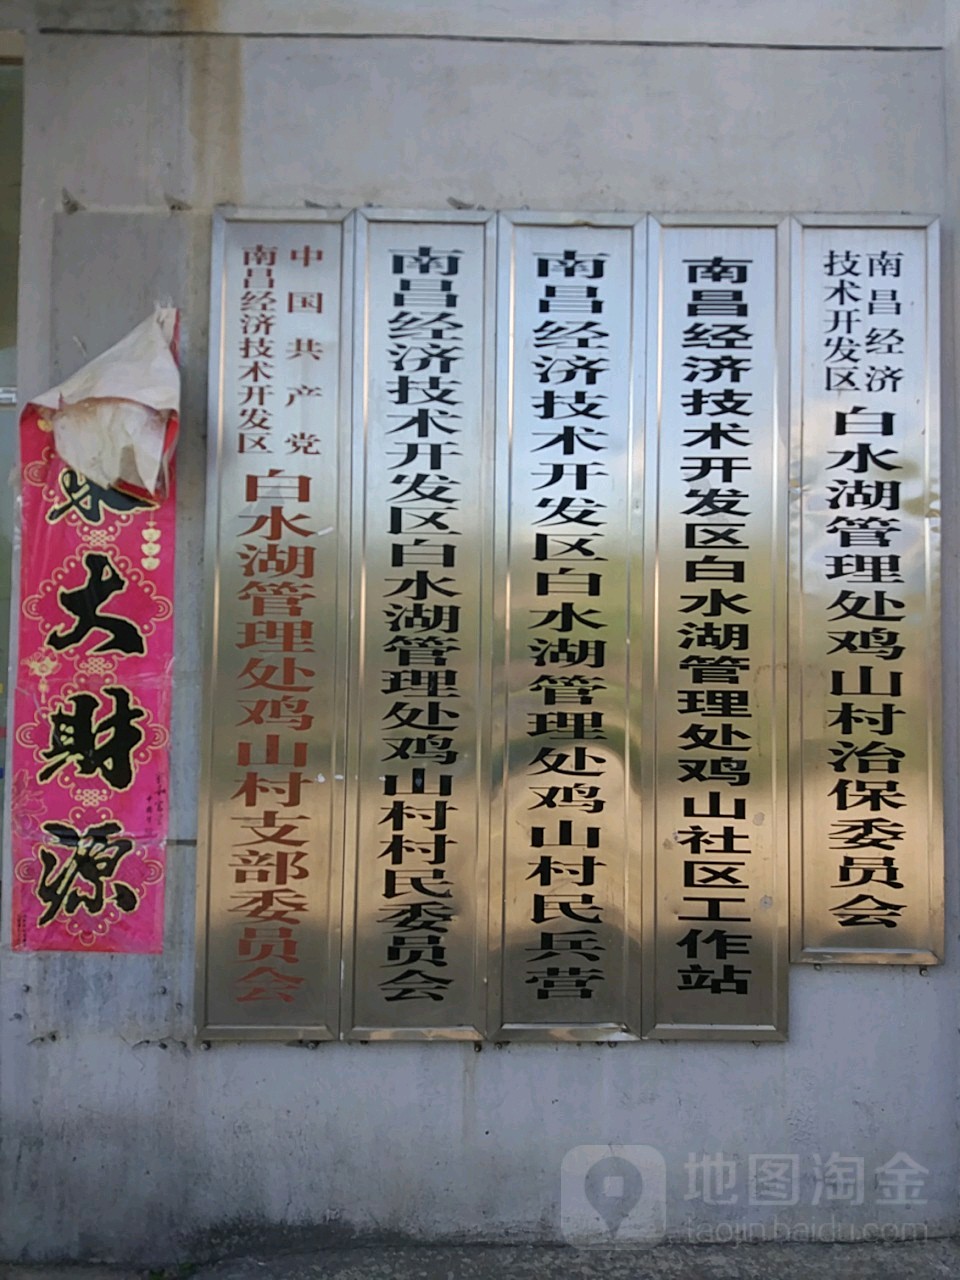 来大财源
中国共产党
南昌经济技术开发区
白水湖管理处鸡山村支部委员会
南昌经济技术开发区白水湖管理处鸡山村村民委员会
南昌经济技术开发区白水湖管理处鸡山村民兵营
南昌经济技术开发区白水湖管理处鸡山社区工作站
南昌经济
技术开发区
白水湖管理处鸡山村治保委员会
地图淘金
taojin.baidu.com